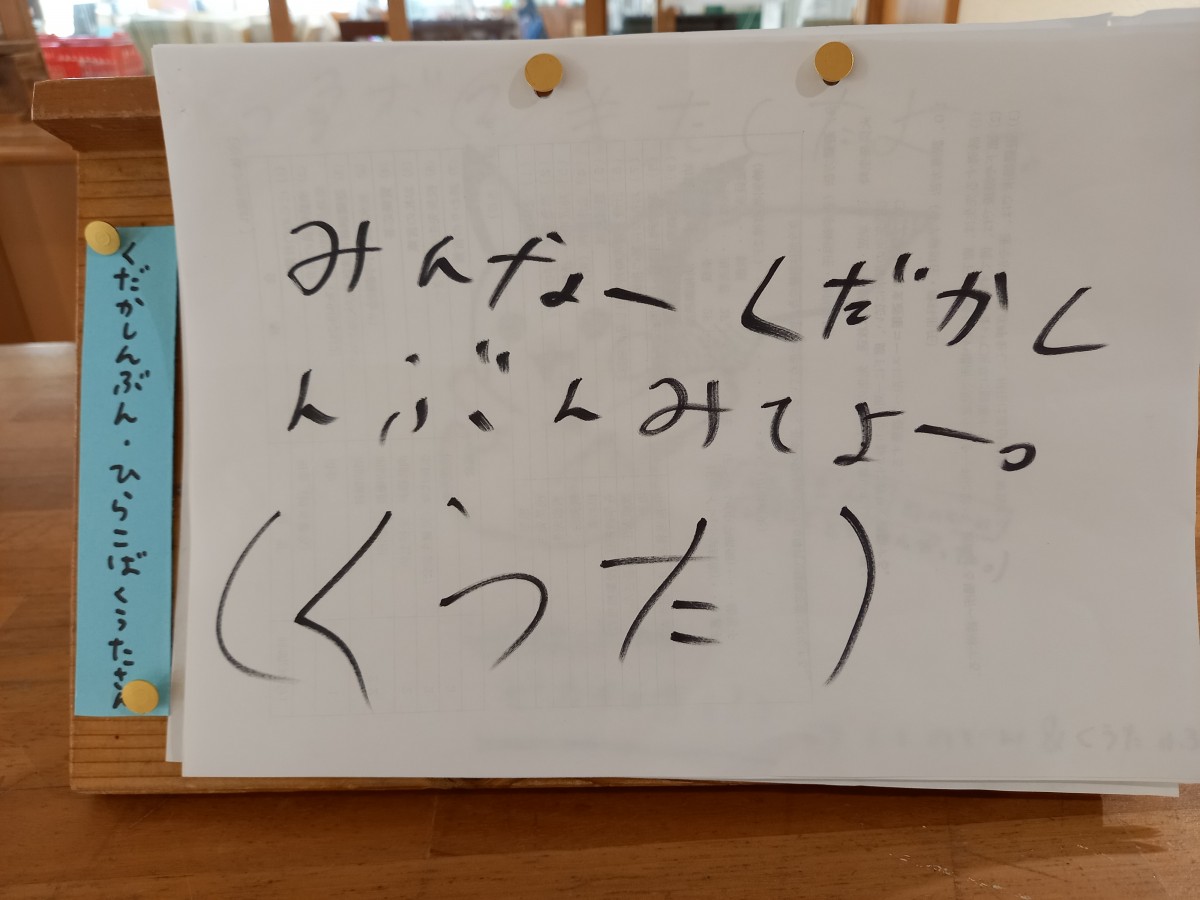 みんなーくだかし
んぶんみてよー。
(くうた)
くだかしんぶん・ひらこばくうたさん